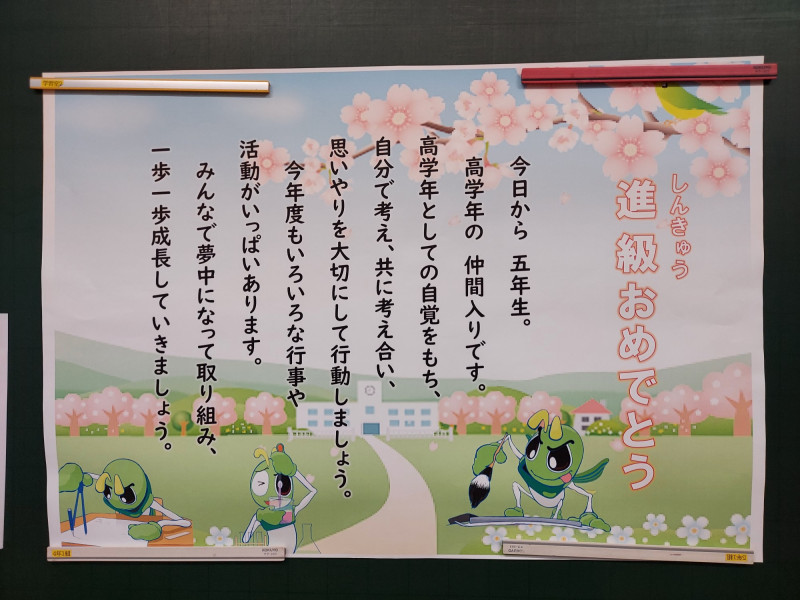 しんきゅう
進級おめでとう
今日から 五年生。
高学年の 仲間入りです。
高学年としての自覚をもち、
自分で考え、共に考え合い、
思いやりを大切にして行動しましょう。
今年度もいろいろな行事や
活動がいっぱいあります。
みんなで夢中になって取り組み、
一歩一歩成長していきましょう。